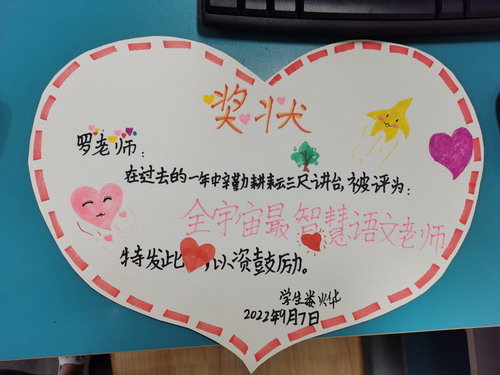 奖状
罗老师：
在过去的一年中辛勤耕耘三尺讲台，被评为：
全宇宙最智慧语文老师
特发此 以资鼓励。
学生娄
2022年9月7日